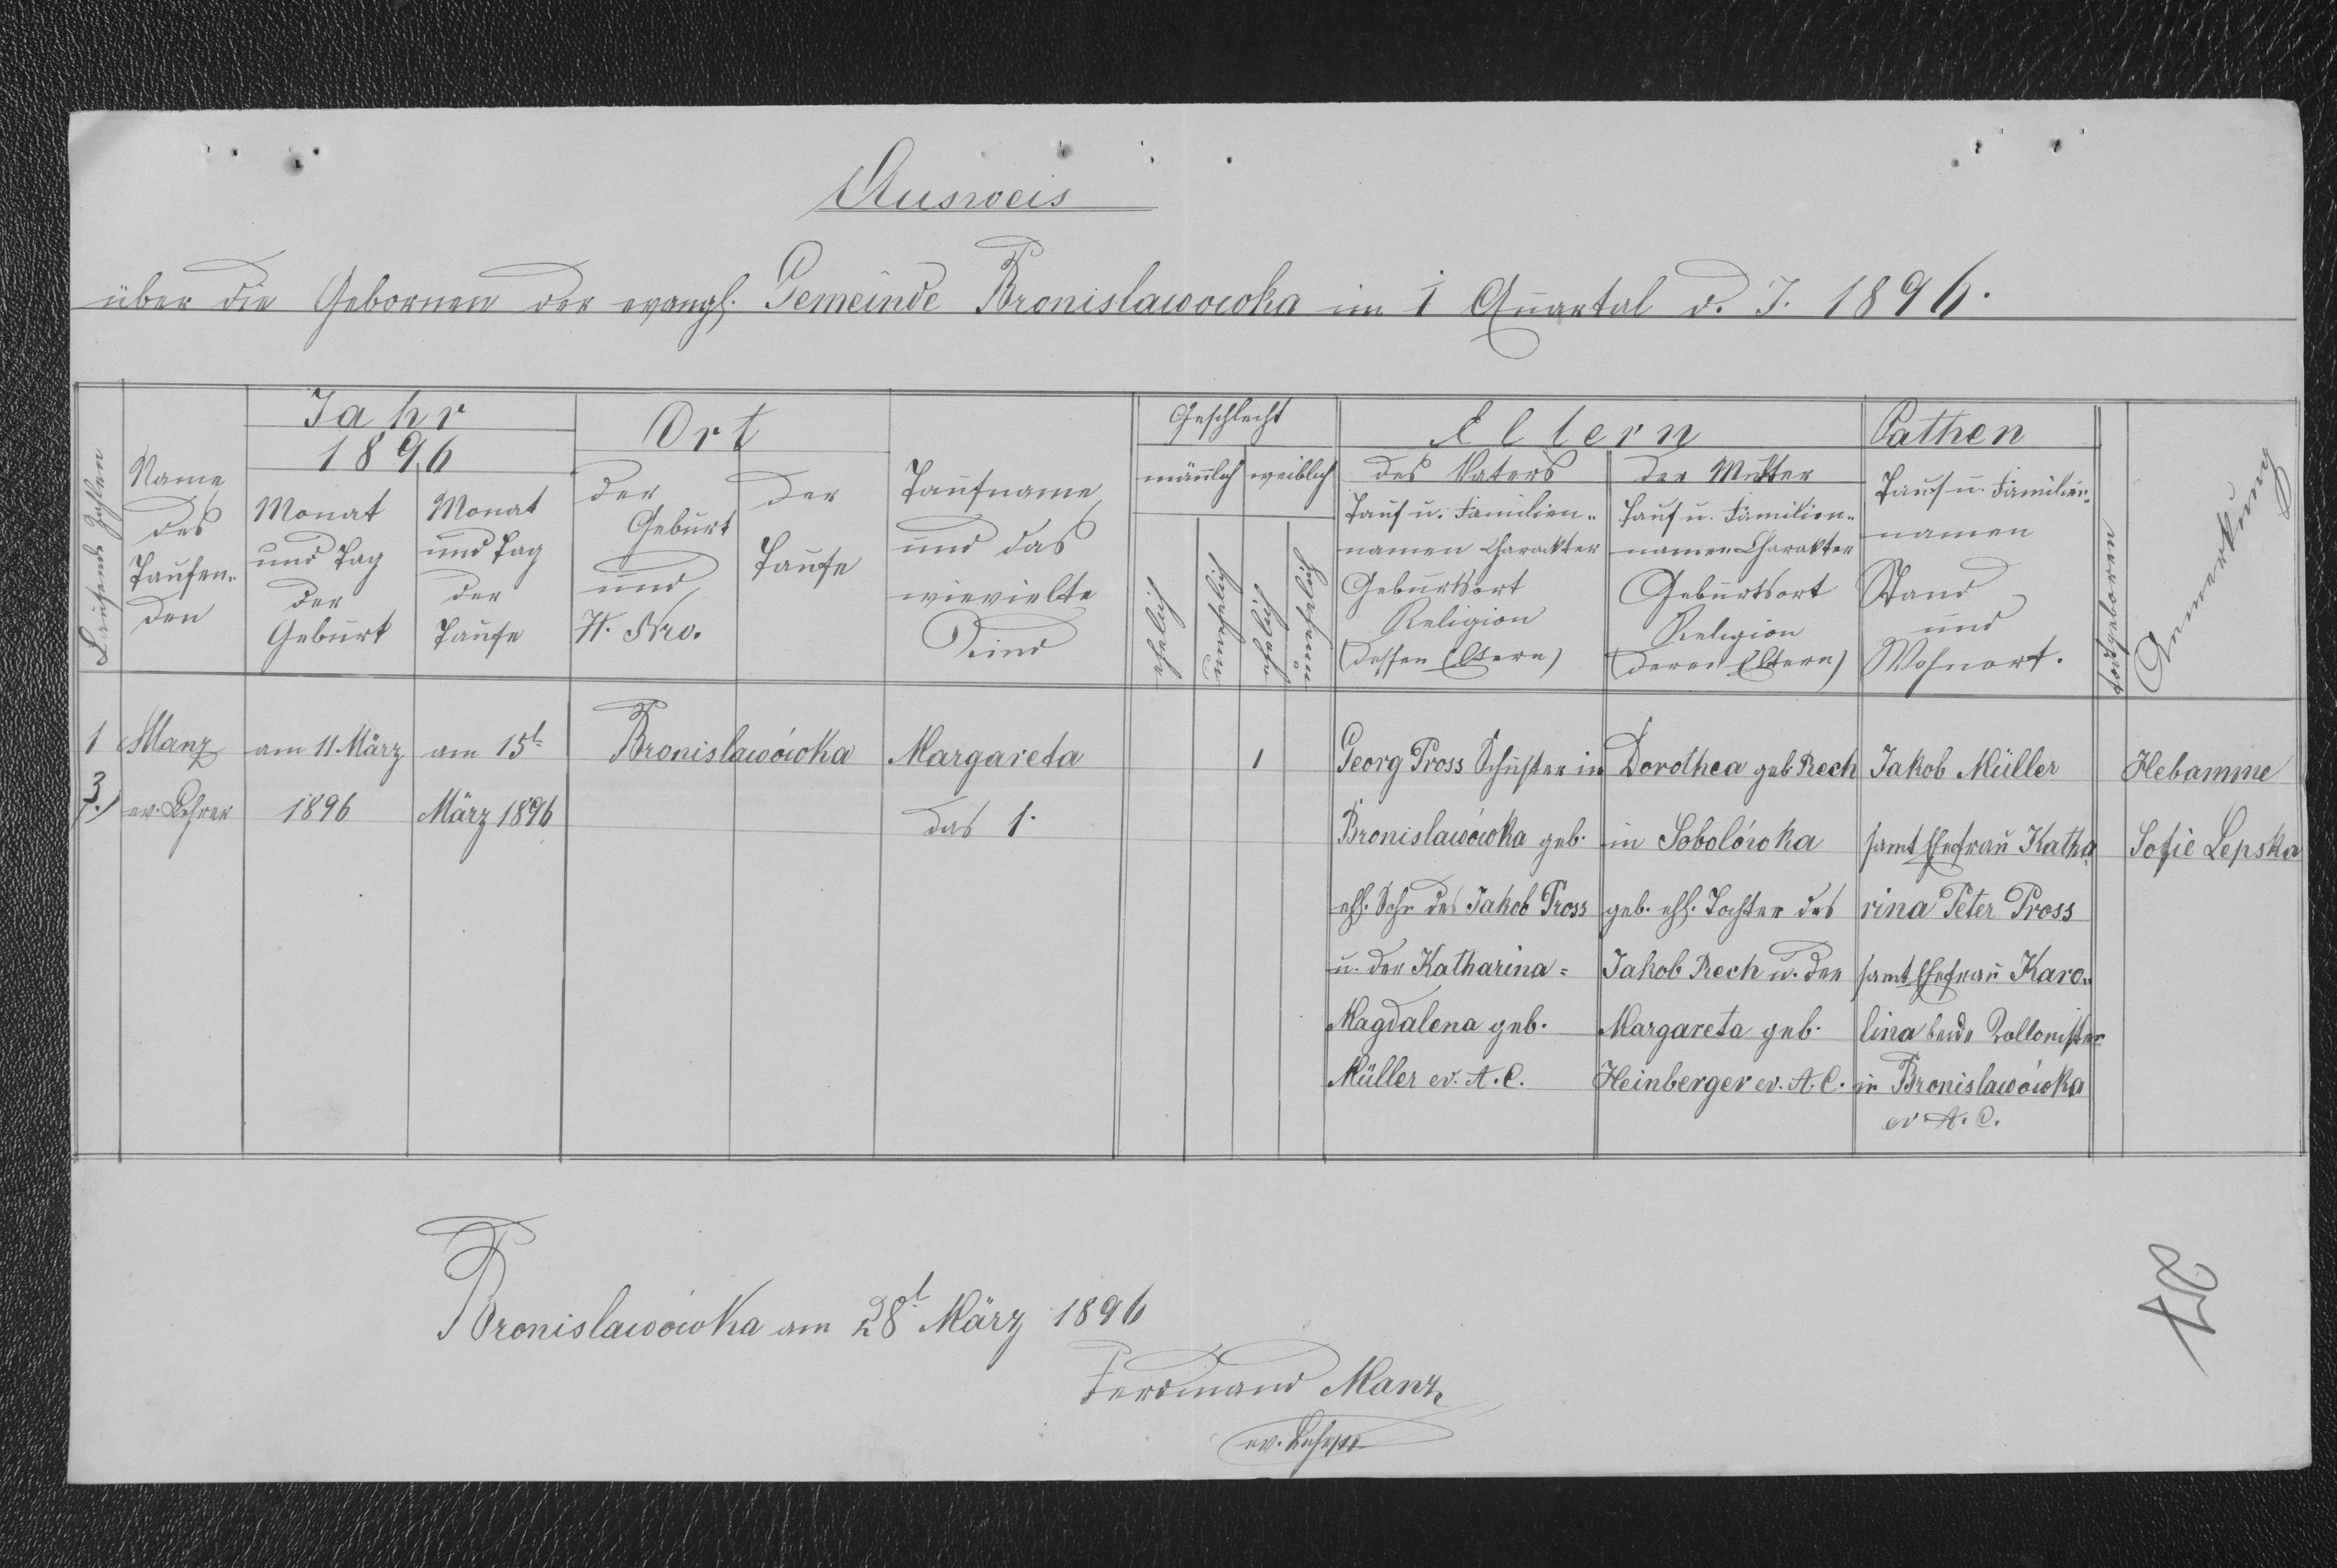 Ausweis
über die Gebornen der evangl. Gemeinde Bronislawowka im 1 Quartal d. J. 1896.
Laufende Zahlen
Name
des
Taufen-
den
Jahr
1896
Monat
und Tag
der
Geburt
Monat
und Tag
der
Taufe
Ort
der
Geburt
und
H. Nro.
der
Taufe
Taufname
und das
wievielte
Kind
Geschlecht
männlich
weiblich
ehelich
unehelich
ehelich
unehelich
Eltern
des Vaters
Tauf u. Familien-
namen Charakter
Geburtsort
Religion
(dessen Eltern)
der Mutter
Tauf u. Familien-
namen Charakter
Geburtsort
Religion
(deren Eltern)
Pathen
Tauf u. Familien-
namen
Stand
und
Wohnort.
todtgeboren
Anmerkung
1
3./.
Manz
ev. Lehrer
am 11. März
1896
am 15t
März 1896
Bronislawówka
Margareta
das 1.
1
Georg Pross Schuster in
Bronislawówka geb.
ehl. Sohn des Jakob Pross
u. der Katharina =
Magdalena geb.
Müller ev. A. C.
Dorothea geb Rech
in Sobolówka
geb. ehl. Tochter des
Jakob Rech u. der
Margareta geb.
Heinberger ev. A. C.
Jakob Müller
samt Ehefrau Katha
rina Peter Pross
samt Ehefrau Karo-
lina beide Kollonisten
in Bronislawówka
ev A. C.
Hebamme
Sofie Lepska
Bronislawówka am 28t März 1896
Ferdinand Manz
ev. Lehrer
87